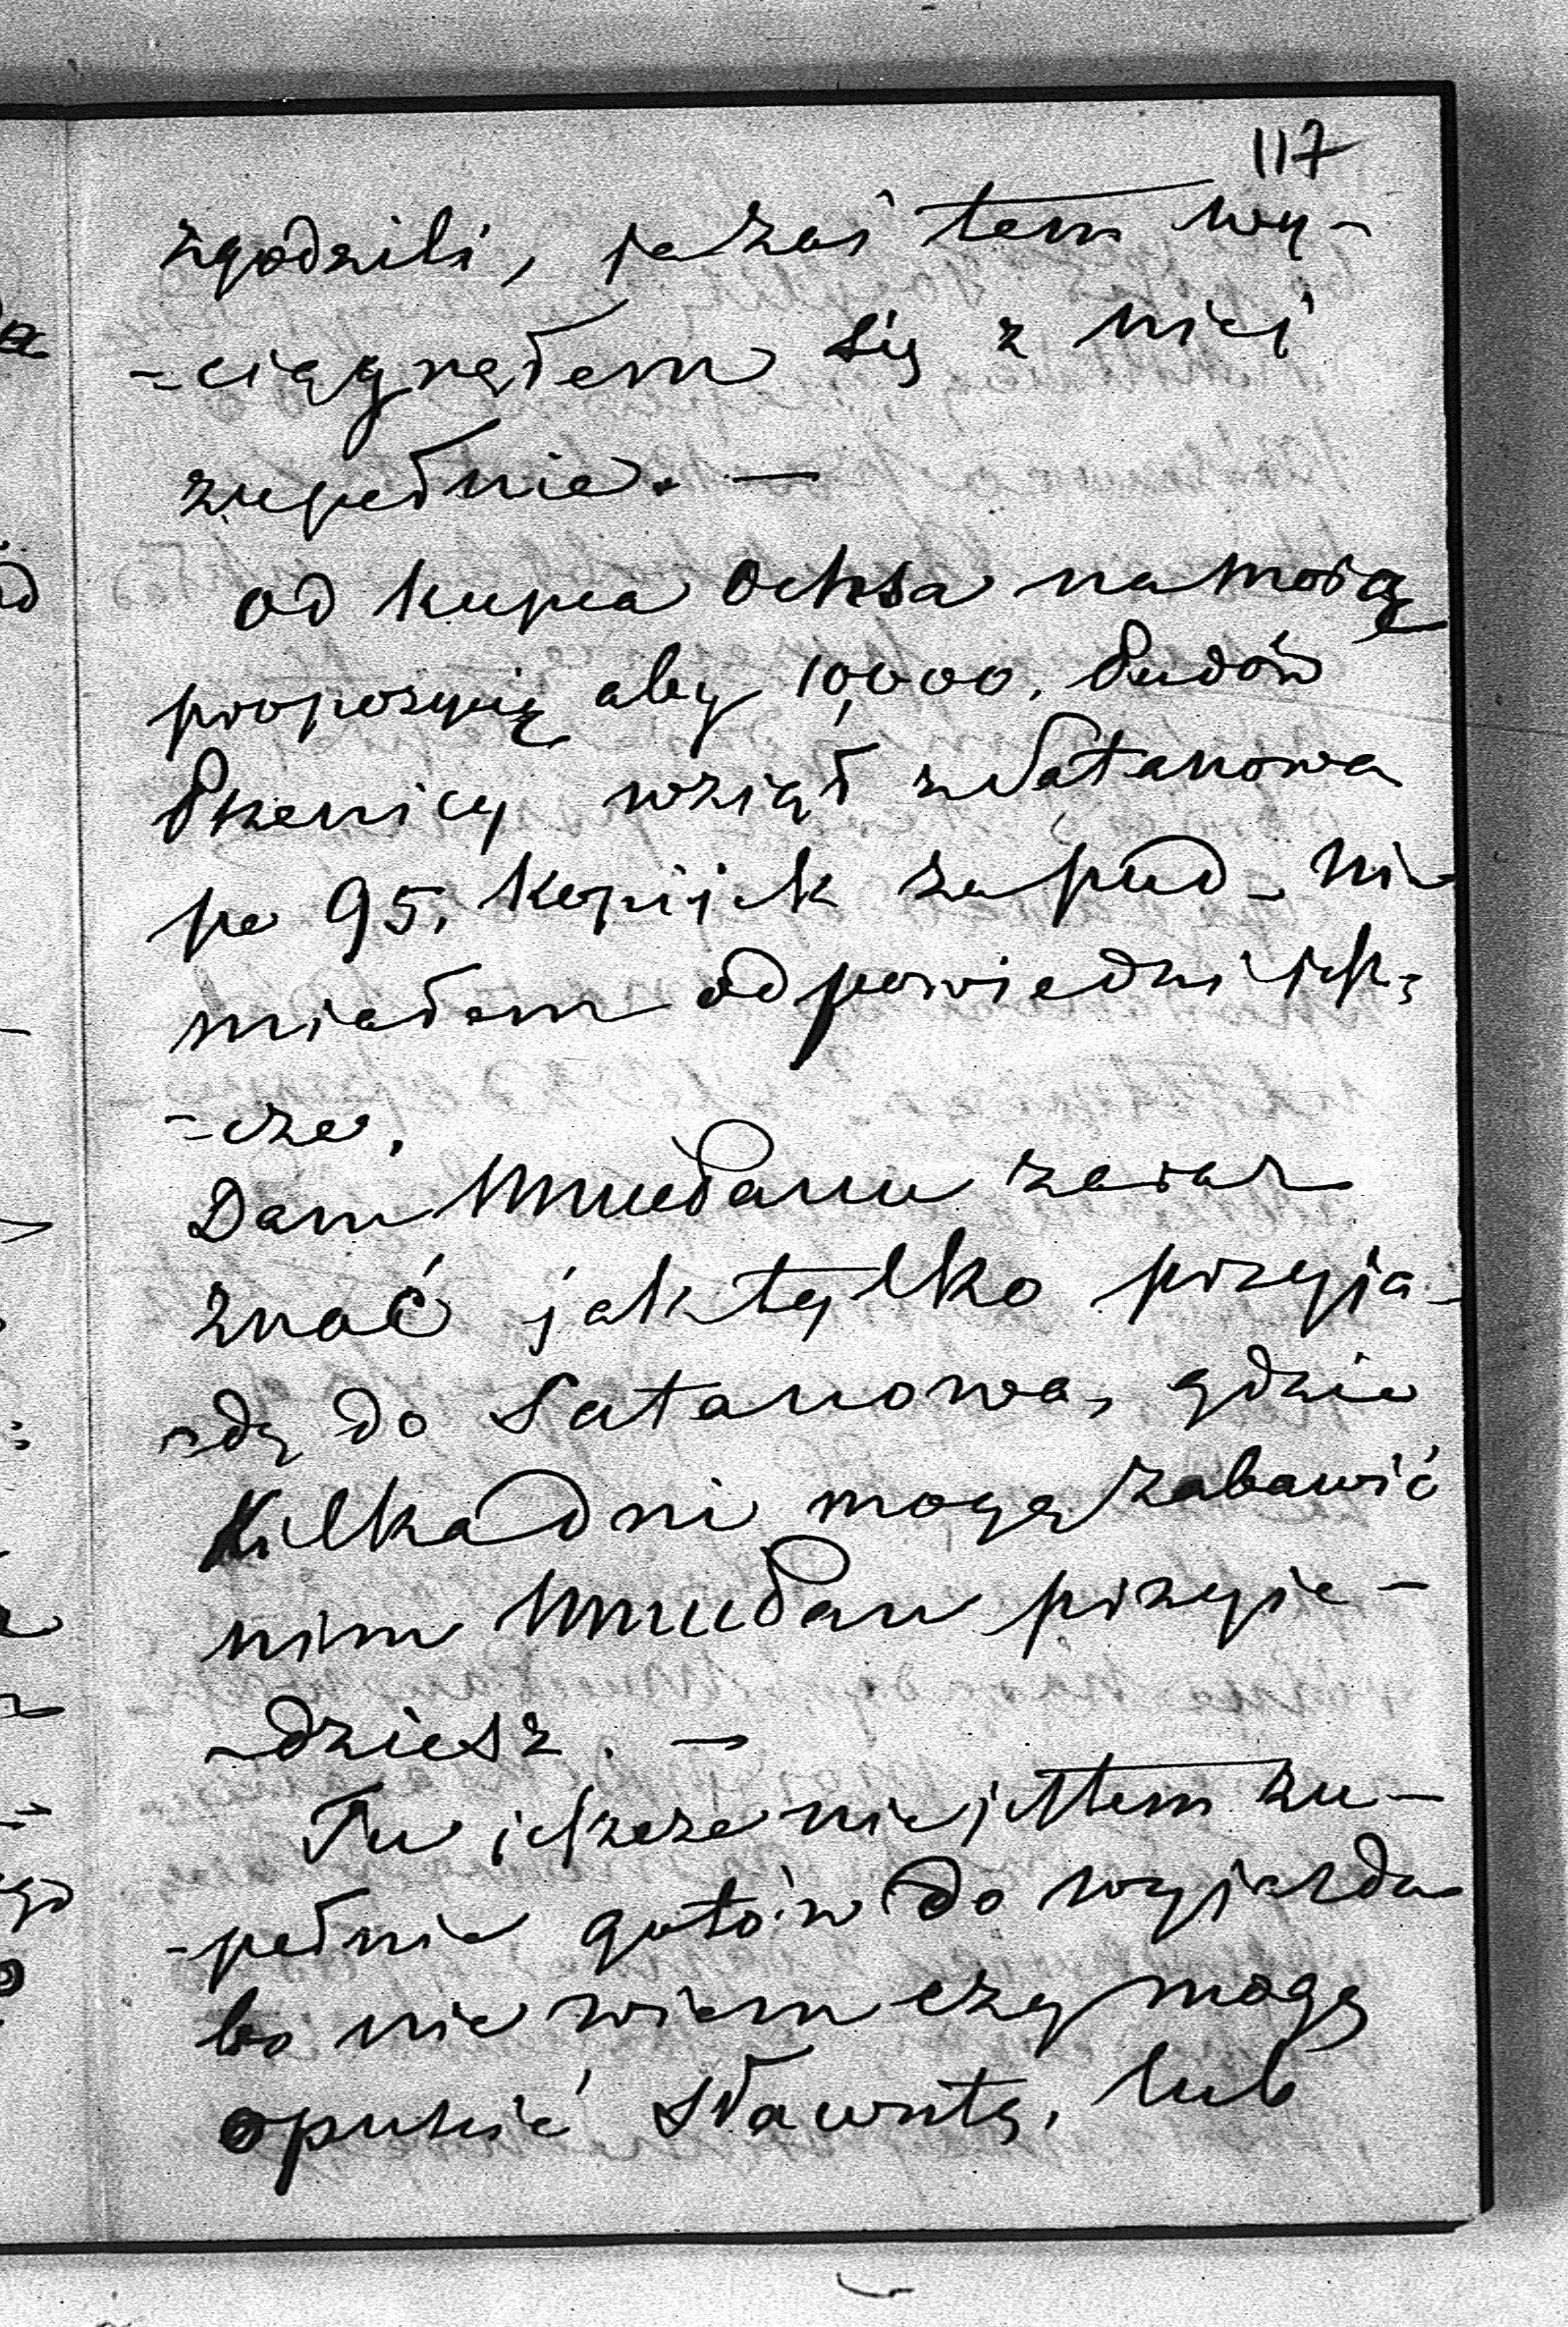 117
zgodzili, ja zaś tem wy-
-ciągnąłem się z niéj
zupełnie. —
od kupca Ochsa na moią
propozycię aby 10,000. Pudów
Pszenicy wziął z Satanowa
po 95. kopijek za pud - nie
miałem odpowiedzi jesz-
-cze.
Dam WMMudanu zaraz
znać jak tylko przyja-
-dę do Satanowa, gdzie
Kilka dni mogę zabawić
nim WMMudan przyie-
-dziesz. —
Tu jeszcze nie jestem zu-
-pełnie gotów do wyjazdu
bo nie wiem czy mogę
opuscić Sławutę, lub